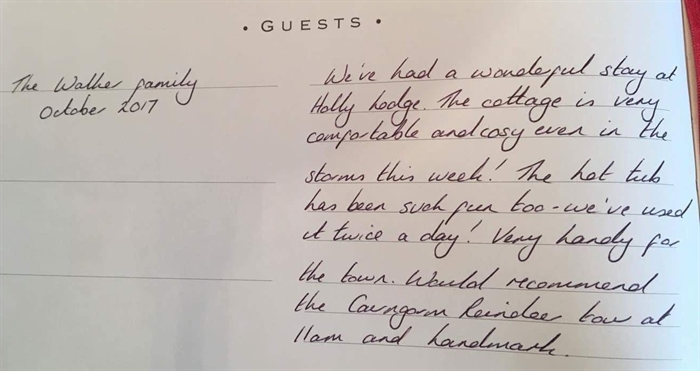 • GUESTS •
The Walker family
October 2017
We've had a wonderful stay at
Holly Lodge. The cottage is very
comfortable and cosy even in the
storms this week! The hot tub
has been such fun too - we've used
it twice a day! Very handy for
the town. Would recommend
the Cairngorm Reindeer tour at
11am and handmark.